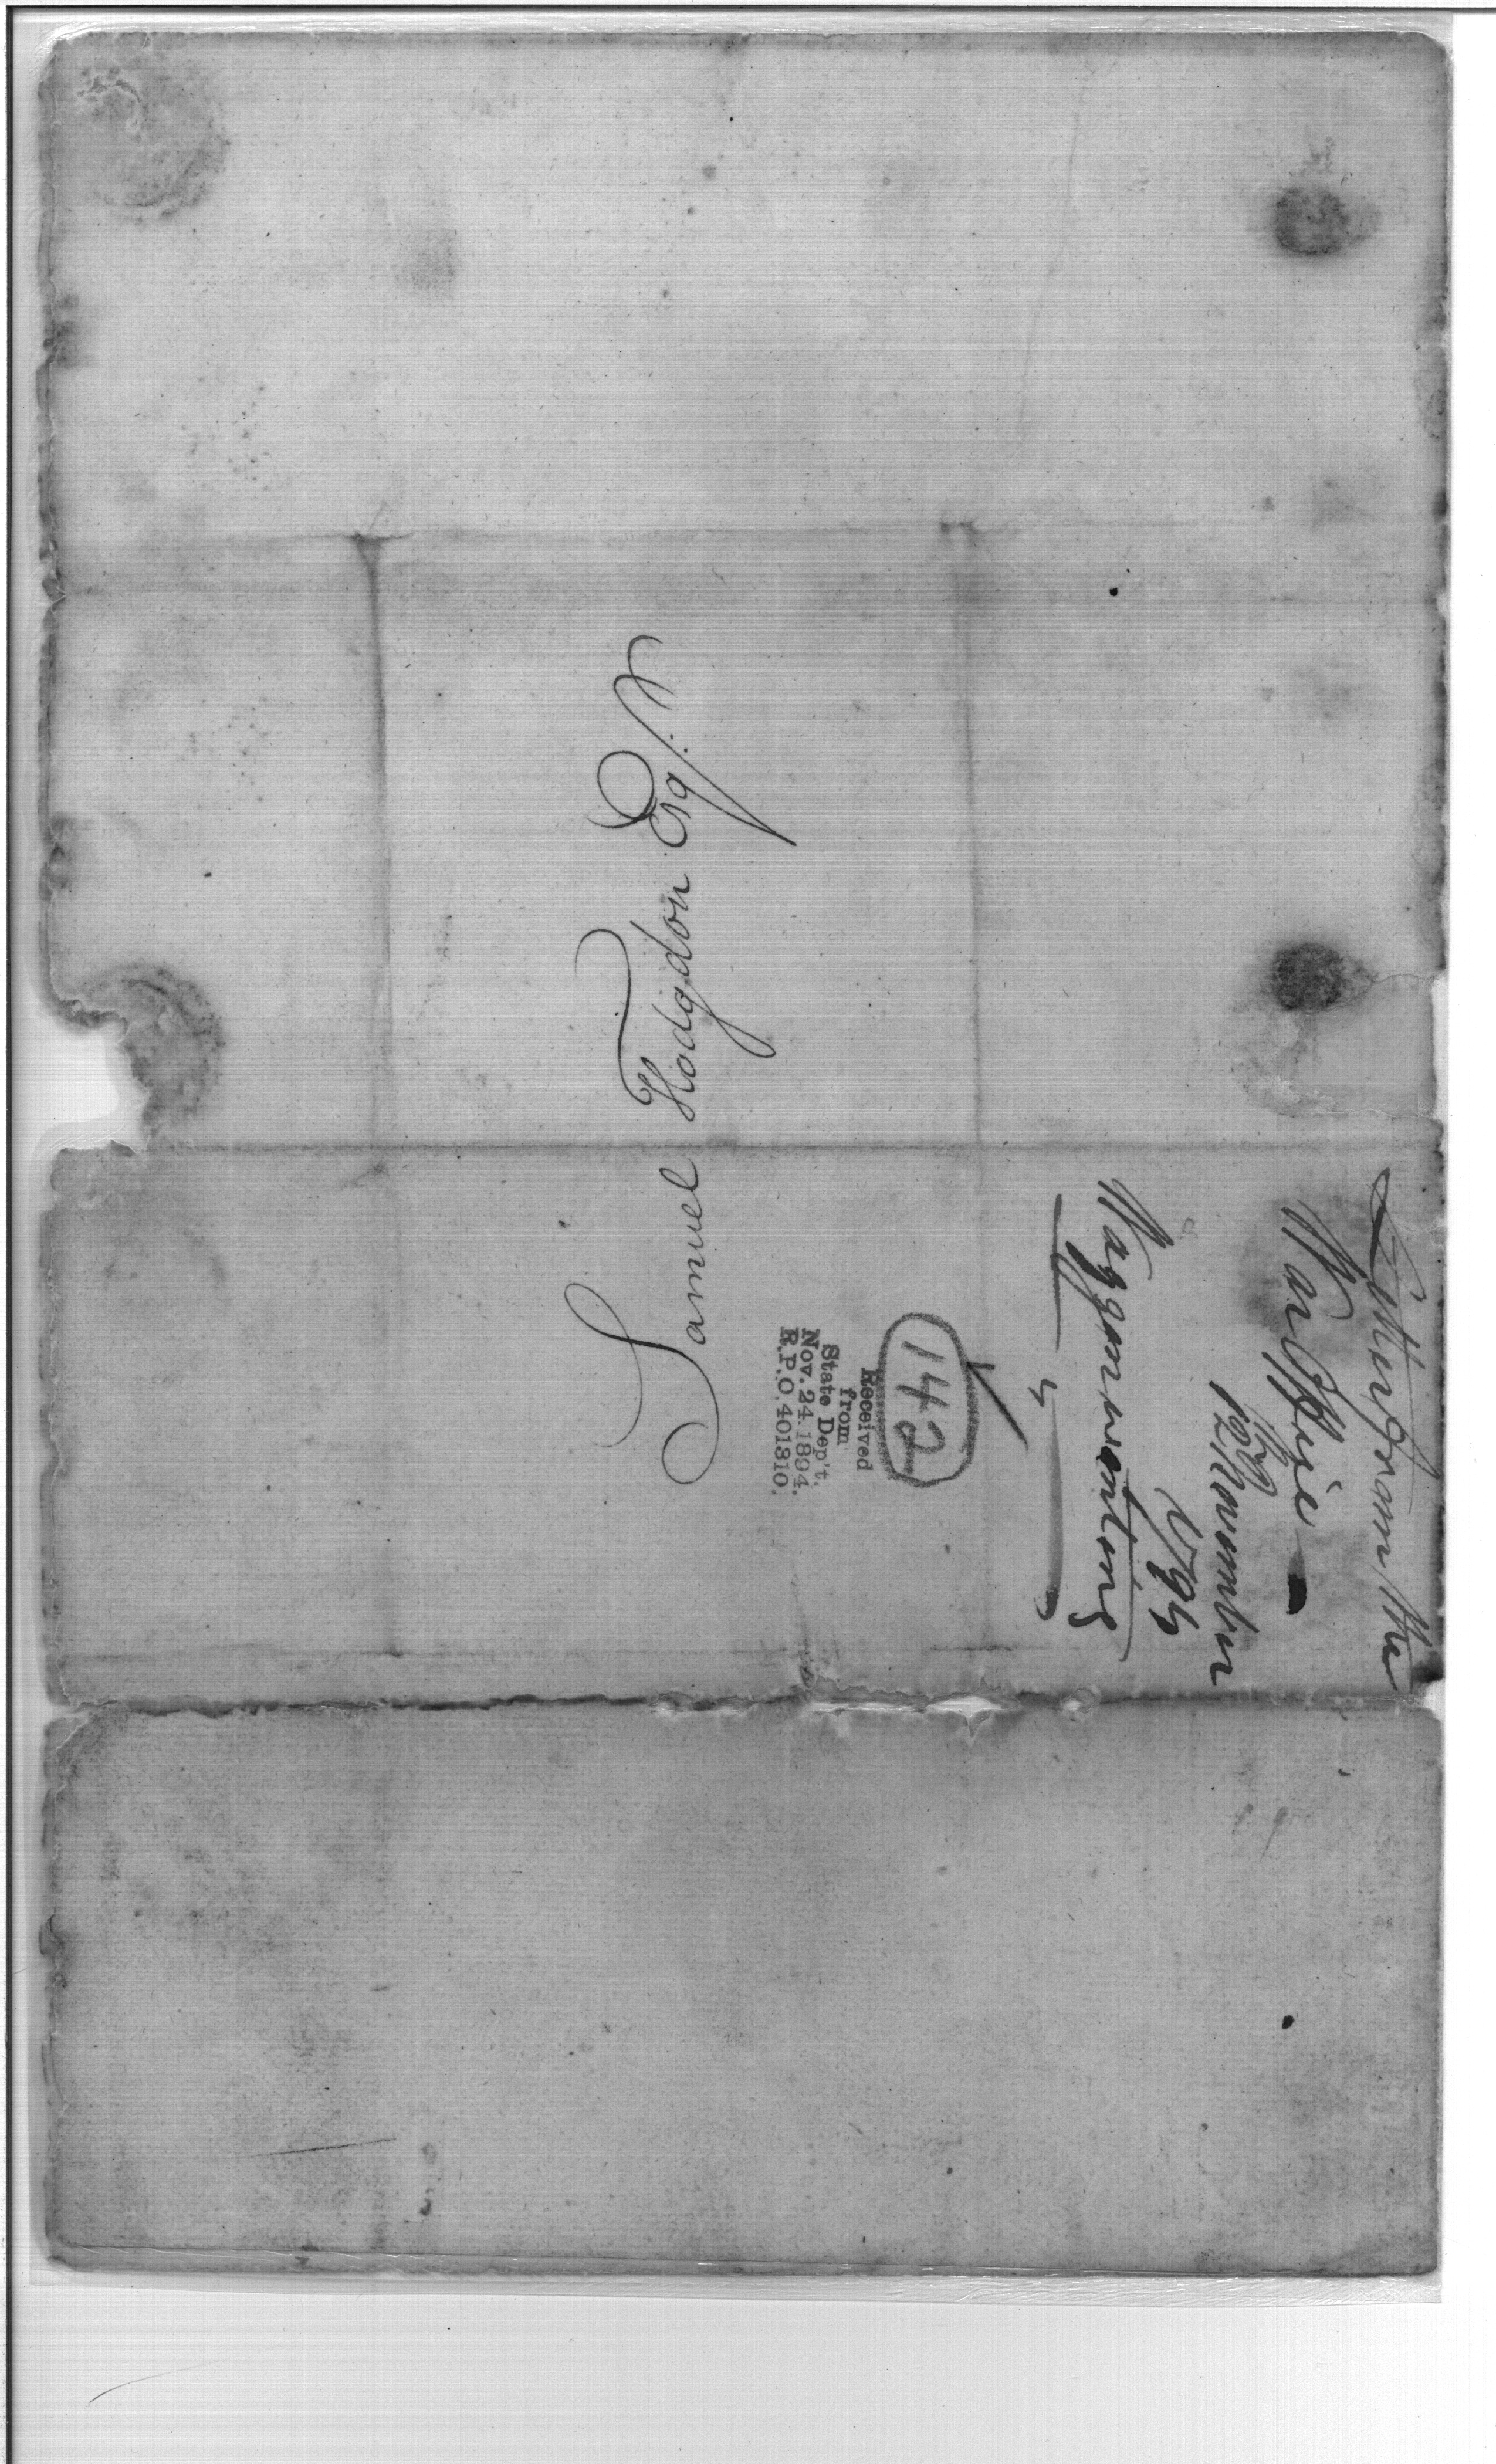 Samuel Hodgdon Esqr.
Letter from the
War Office
12th November
1794
Waggons wanting
142
Received
from
State Dep't.
Nov. 24. 1894.
R.P.O. 401310.